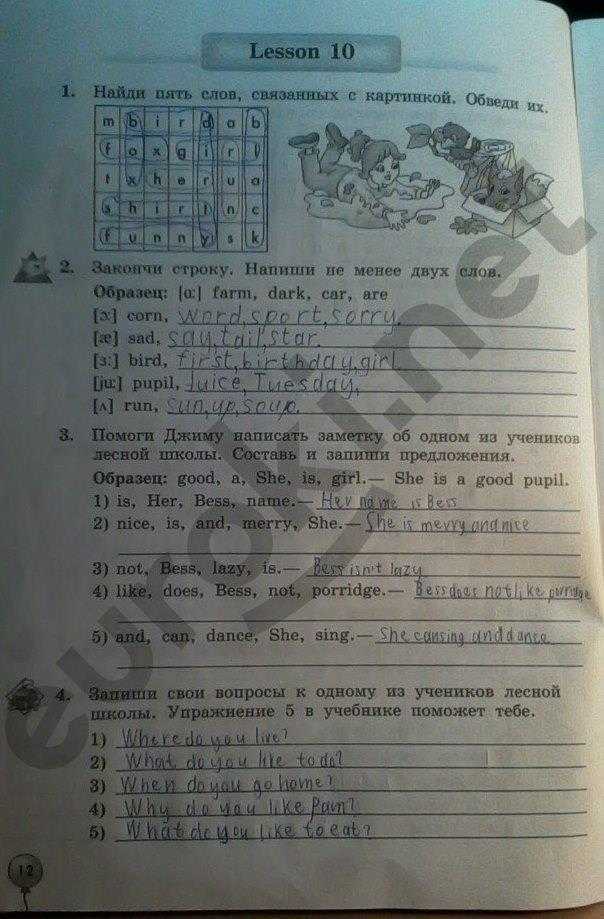 Lesson 10
1. Найди пять слов, связанных с картинкой. Обведи их.
m b i r d a b
f o x g i r l
t x h e r u a
s h i r t n c
f u n n y s k
2. Закончи строку. Напиши не менее двух слов.
Образец: [ɑ:] farm, dark, car, are
[ɔ:] corn, word, sport, sorry.
[æ] sad, say, tail, star.
[ɜ:] bird, first, birthday, girl
[ju:] pupil, Juice, Tuesday,
[ʌ] run, sun, up, soup.
3. Помоги Джиму написать заметку об одном из учеников
лесной школы. Составь и запиши предложения.
Образец: good, a, She, is, girl.— She is a good pupil.
1) is, Her, Bess, name.— Her name is Bess
2) nice, is, and, merry, She.— She is merry and nice
3) not, Bess, lazy, is.— Bess isn't lazy
4) like, does, Bess, not, porridge.— Bess does not like porridge
5) and, can, dance, She, sing.— She can sing and dance
4. Запиши свои вопросы к одному из учеников лесной
школы. Упражнение 5 в учебнике поможет тебе.
1) Where do you live?
2) What do you like to do?
3) When do you go home?
4) Why do you like Pam?
5) What do you like to eat?
12
euroki.net